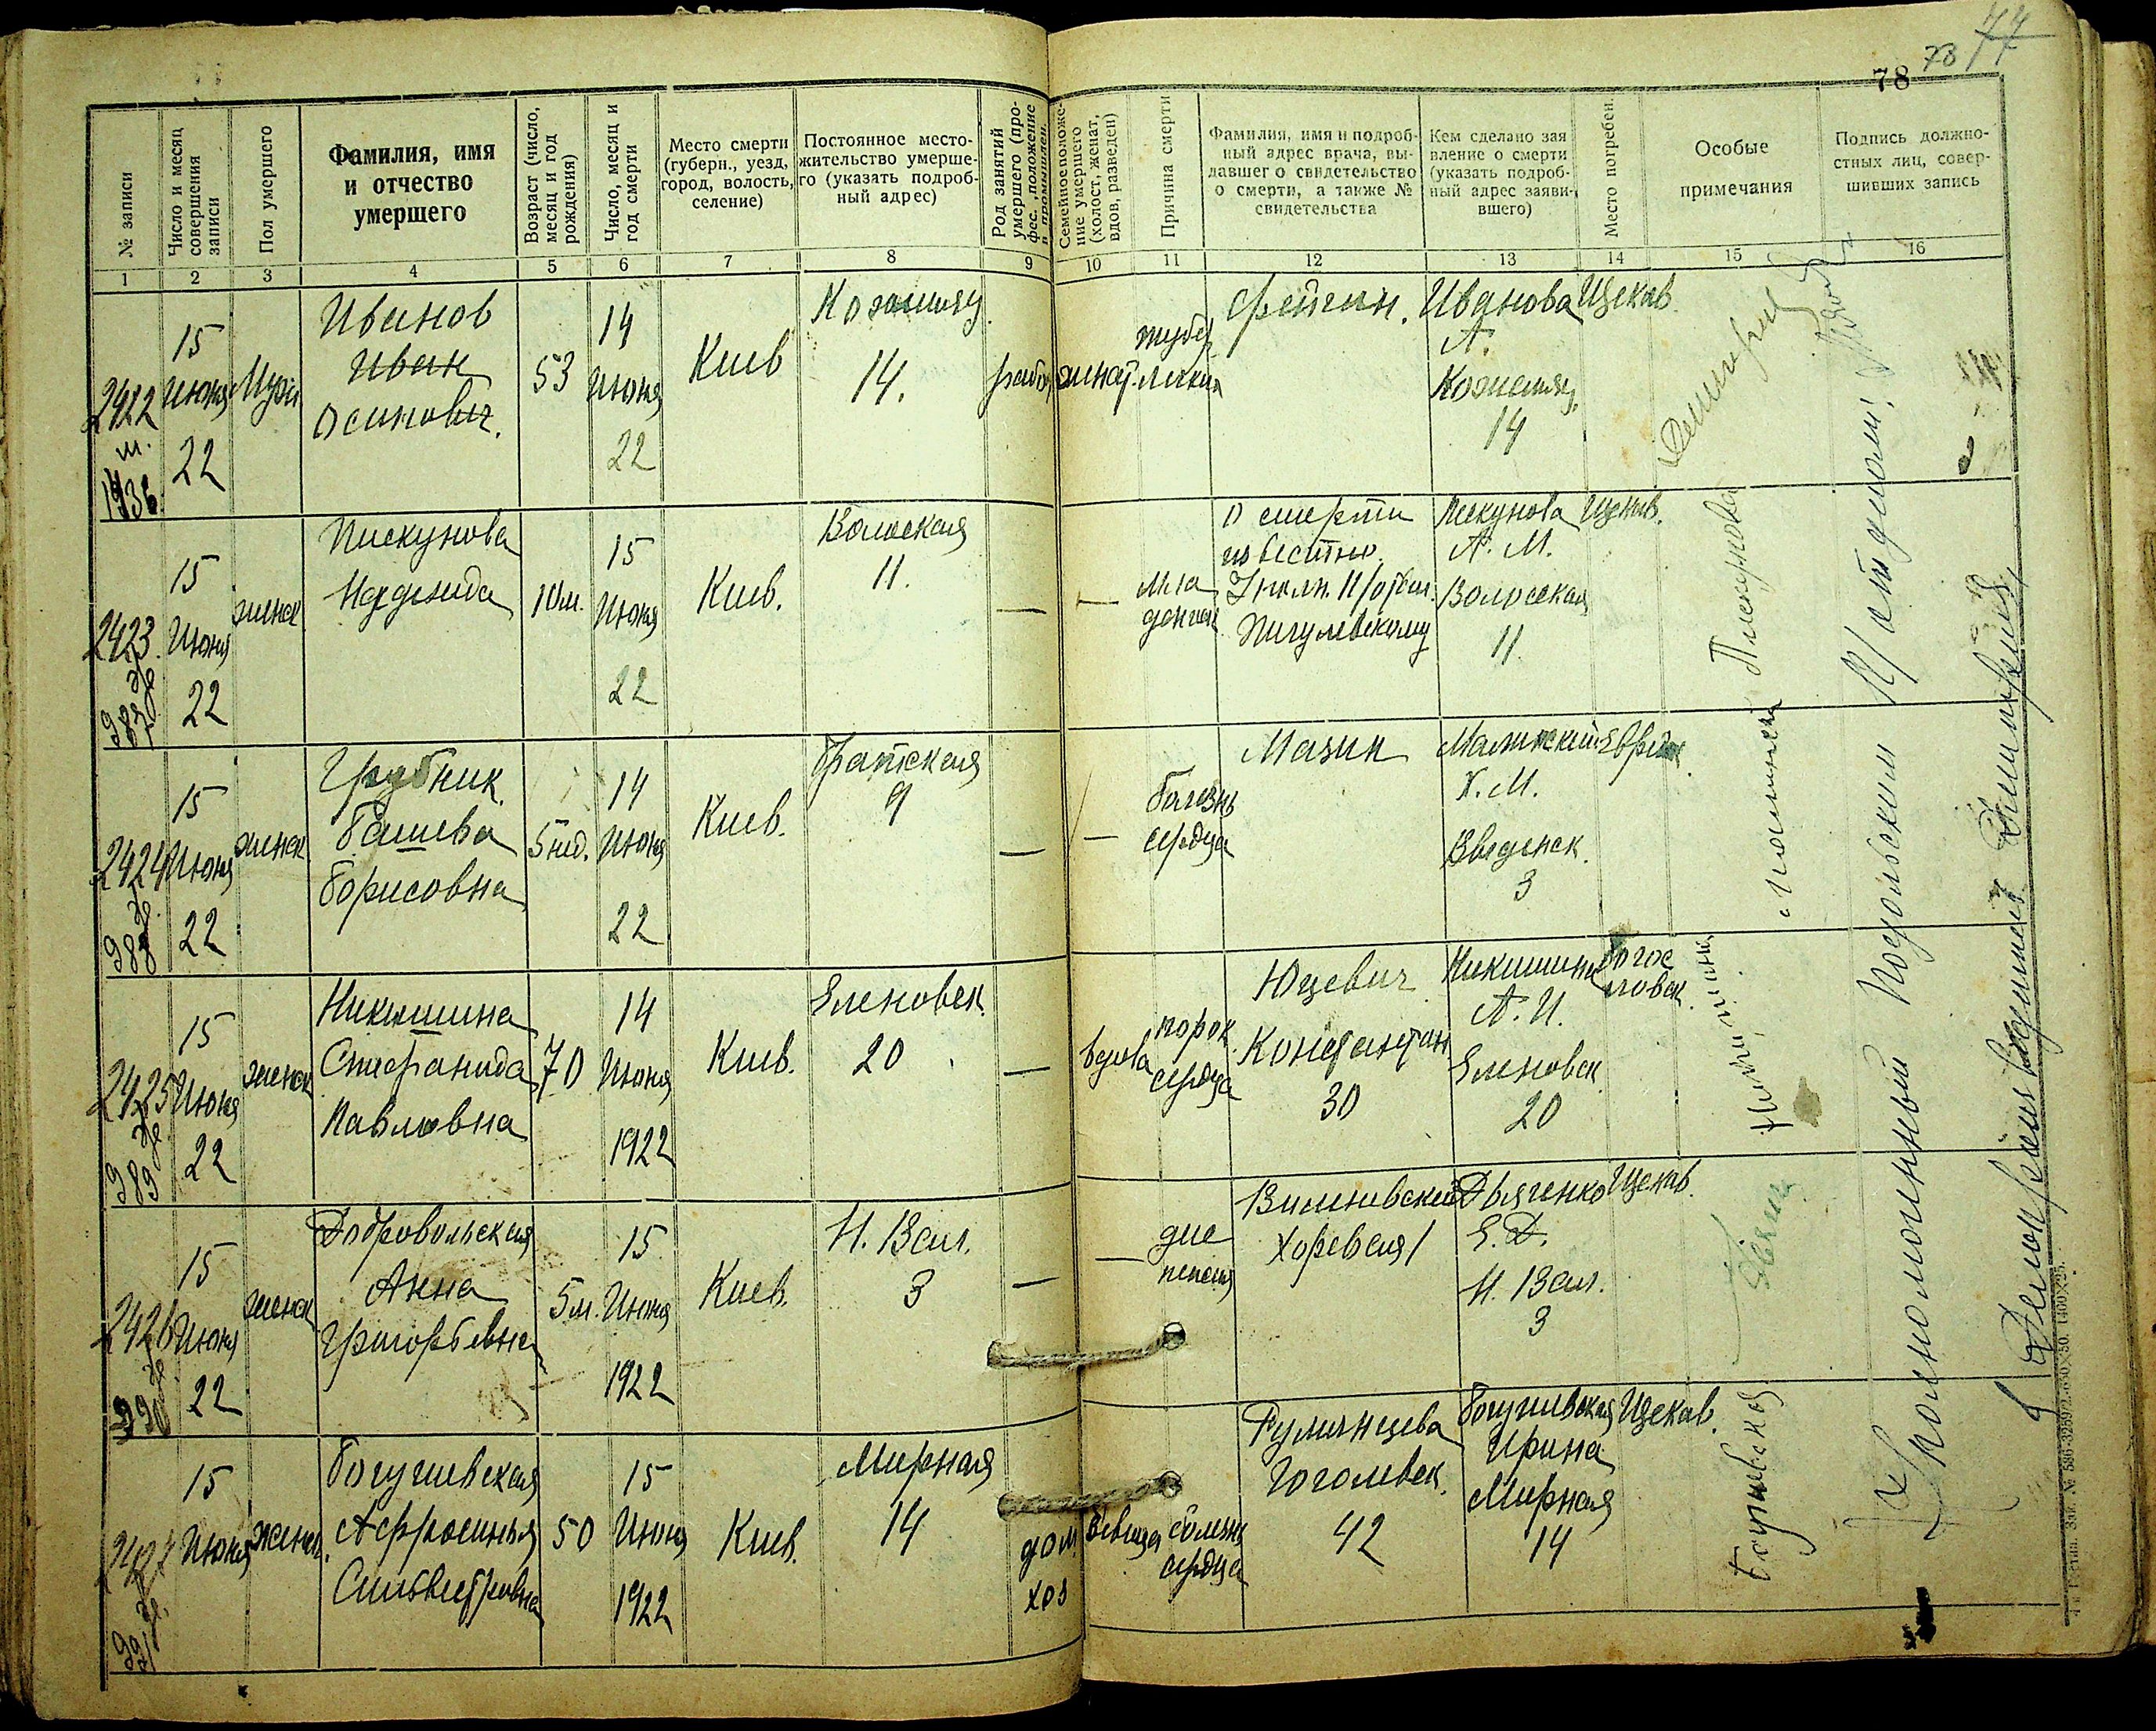 78 78 77
№ записи
Число и месяц совершения записи
Пол умершего
Фамилия, имя
и отчество
умершего
Возраст (число, месяц и год рождения)
Число, месяц и год смерти
Место смерти
(губерн., уезд,
город, волость,
селение)
Постоянное место-
жительство умерше-
го (указать подроб-
ный адрес)
Род занятий умершего (про-
фес., положение
в промышлен.
Семейное положе-
ние умершего
(холост, женат,
вдов, разведен)
Причина смерти
Фамилия, имя и подроб-
ный адрес врача, вы-
давшего о свидетельство
о смерти, а также №
свидетельства
Кем сделано зая
вление о смерти
(указать подроб-
ный адрес заяви-
вшего)
Место погребен.
Особые
примечания
Подпись должно-
стных лиц, совер-
шивших запись
1 2 3 4 5 6 7 8 9 10 11 12 13 14 15 16
2422
м.
1436
15
Июня
22
Муж
Иванов
Иван
Осипович.
53
14
Июня
22
Киев
14.
женат
легких
Фейгин.
Иванова
А.
14
Щекав.
2423
987
15
Июня
22
женск
Пискунова
Надежда
10м.
15
Июня
22
Киев.
Волоская
11.
—
—
О смерти
известно
Пигулевскому
Пискунова
А. М.
Волосская
11
Щекав.
2424
988
15
Июня
22
женск
Грубник
Башева
Борисовна
5 нед.
14
Июня
22
Киев.
Братская
9
—
—
болезнь
сердца
Мазин
Х. М.
Введенск.
3
2425
989
15
Июня
22
женск
Никишина
Стефанида
Павловна
70
14
Июня
1922
Киев.
Еленовск.
20
—
вдова
порок
сердца
Юцевич
Константин
30
Никишина
А. И.
Еленовск
20
2426
990
15
Июня
22
женск
Добровольская
Анна
Григорьевна
5 м.
15
Июня
1922
Киев.
Н. Вал.
3
—
—
дис
пепсия
Хоревая 1
Дьяченко
Е. Д.
Н. Вал.
3
Щекав.
2427
991
15
Июня
женск.
Богушевская
Афросинья
Сильвестровна
50
15
Июня
1922
Киев.
Мирная
14
дом
хоз
девица
болезнь
сердца
Румянцева
Гоголевск.
42
Богушевская
Ирина
Мирная
14
Щекав.
Богушевская
Подольским